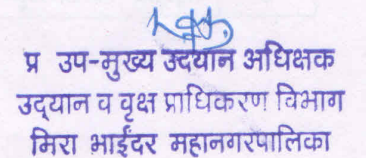 प्र उप-मुख्य उद्यान अधिक्षक
उद्यान व वृक्ष प्राधिकरण विभाग
मिरा भाईंदर महानगरपालिका